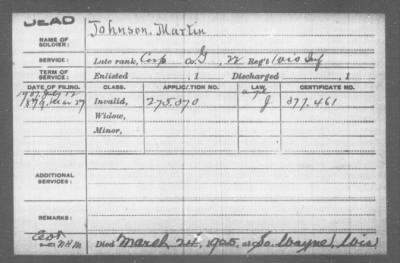 DEAD
NAME OF SOLDIER: Johnson, Martin
SERVICE: Late rank, Corp Co. G, 22 Reg't Wis Inf
TERM OF SERVICE: Enlisted , 1 Discharged , 1
DATE OF FILING. CLASS. APPLICATION NO. LAW. CERTIFICATE NO.
Invalid, 275.370 J 377.461
Widow,
Minor,
ADDITIONAL SERVICES:
REMARKS:
Died March 24, 1925, at So. Wayne, Wis